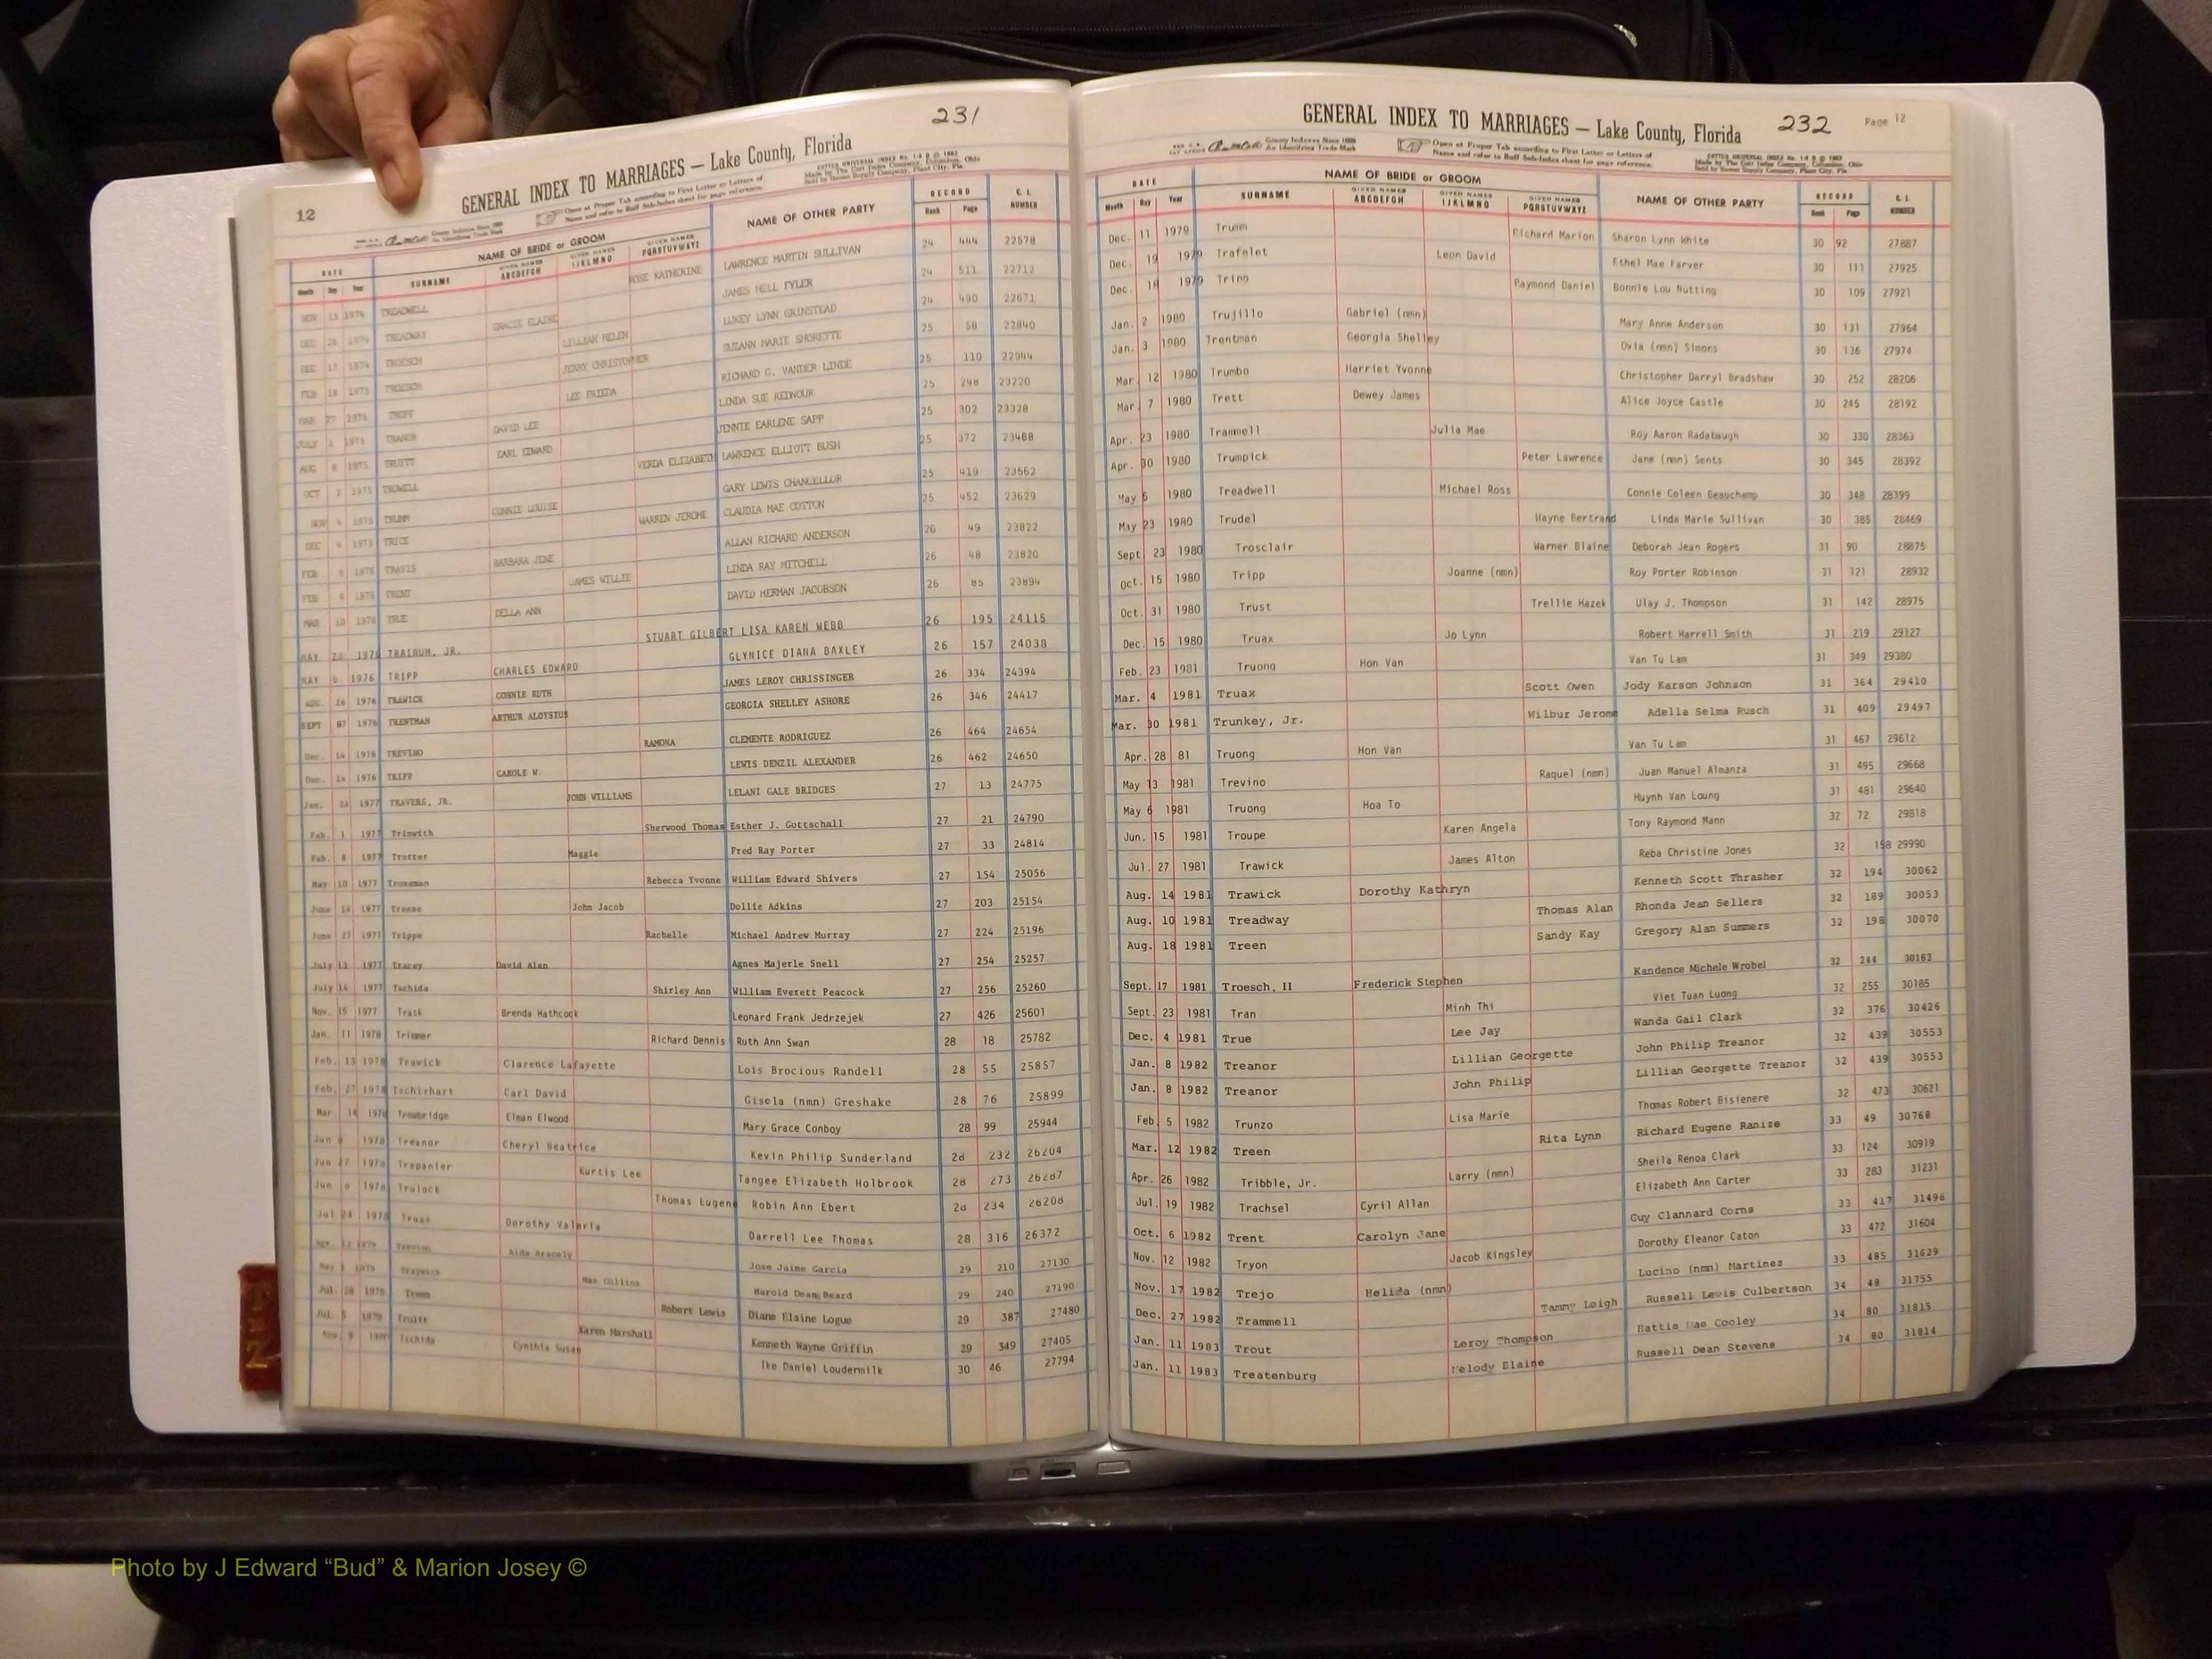 231
12
GENERAL INDEX TO MARRIAGES — Lake County, Florida
DATE NAME OF BRIDE or GROOM NAME OF OTHER PARTY RECORD C. I. NUMBER
Month Day Year SURNAME GIVEN NAMES ABCDEFGH GIVEN NAMES IJKLMNO GIVEN NAMES PQRSTUVWXYZ Book Page
NOV 15 1974 TREADWELL ROSE KATHERINE LAWRENCE MARTIN SULLIVAN 24 444 22578
DEC 26 1974 TREADWAY GRACIE ELAINE JAMES NELL TYLER 24 511 22712
DEC 17 1974 TROESCH LILLIAN HELEN LUKEY LYNN GRINSTEAD 24 490 22671
FEB 18 1975 TROESCH JERRY CHRISTOPHER SUZANN MARIE SHORETTE 25 58 22840
MAR 27 1975 LEE FRIEDA RICHARD G. VANDER LINDE 25 110 22944
JULY 1 1975 DAVID LEE LINDA SUE REDNOUR 25 248 23220
AUG 8 1975 TRUITT CARL EDWARD JENNIE EARLENE SAPP 25 302 23328
OCT 1975 TROWELL VERDA ELIZABETH LAWRENCE ELLIOTT BUSH 25 372 23468
NOV 4 1975 CONNIE LOUISE GARY LEWIS CHANCELLOR 25 419 23562
DEC 4 1975 TRICE WARREN JEROME CLAUDIA MAE COTTON 25 452 23629
FEB 9 1976 TRAVIS BARBARA JENE ALLAN RICHARD ANDERSON 26 49 23822
FEB 9 1976 TRENT JAMES WILLIE LINDA RAY MITCHELL 26 48 23820
MAR 10 1976 TRUE DELLA ANN DAVID HERMAN JACOBSON 26 85 23894
MAY 28 1976 TRAINUM, JR. STUART GILBERT LISA KAREN WEBB 26 195 24115
MAY 5 1976 TRIPP CHARLES EDWARD GLYNICE DIANA BAXLEY 26 157 24038
AUG. 26 1976 TRAWICK CONNIE RUTH JAMES LEROY CHRISSINGER 26 334 24394
SEPT 07 1976 TRENTMAN ARTHUR ALOYSIUS GEORGIA SHELLEY ASHORE 26 346 24417
Dec. 14 1976 TREVINO RAMONA CLEMENTE RODRIGUEZ 26 464 24654
Dec. 14 1976 TRIPP CAROLE W. LEWIS DENZIL ALEXANDER 26 462 24650
Jan. 24 1977 TRAVERS, JR. JOHN WILLIAMS LELANI GALE BRIDGES 27 13 24775
Feb. 1 1977 Trimwith Sherwood Thomas Esther J. Gottschall 27 21 24790
Feb. 8 1977 Trotter Maggie Fred Ray Porter 27 33 24814
May 10 1977 Trossman Rebecca Yvonne William Edward Shivers 27 154 25056
June 14 1977 Treese John Jacob Dollie Adkins 27 203 25154
June 27 1977 Trippe Rachelle Michael Andrew Murray 27 224 25196
July 13 1977 Tracey David Alan Agnes Majerle Snell 27 254 25257
July 14 1977 Tschida Shirley Ann William Everett Peacock 27 256 25260
Nov. 15 1977 Trask Brenda Hathcock Leonard Frank Jedrzejek 27 426 25601
Jan. 11 1978 Trimmer Richard Dennis Ruth Ann Swan 28 18 25782
Feb. 13 1978 Trawick Clarence Lafayette Lois Brocious Randell 28 55 25857
Feb. 27 1978 Tschirhart Carl David Gisela (nmn) Greshake 28 76 25899
Mar. 14 1978 Trowbridge Elman Elwood Mary Grace Conboy 28 99 25944
Jun 1978 Treanor Cheryl Beatrice Kevin Philip Sunderland 28 232 26204
Jun 27 1978 Trepanier Kurtis Lee Tangee Elizabeth Holbrook 28 273 26287
Jun 1978 Trulock Thomas Eugene Robin Ann Ebert 28 234 26208
Jul 24 1978 Truax Dorothy Valeria Darrell Lee Thomas 28 316 26372
Apr. 1979 Trevino Aida Aracely Jose Jaime Garcia 29 210 27130
May 1979 Mae Collins Harold Dean Beard 29 240 27190
Jul. 20 1979 Robert Lewis Diane Elaine Logue 29 387 27480
Jul. 5 1979 Truitt Karen Marshall Kenneth Wayne Griffin 29 349 27405
Nov. 9 Tschida Cynthia Susan Ike Daniel Loudermilk 30 46 27794
232 Page 12
GENERAL INDEX TO MARRIAGES — Lake County, Florida
DATE NAME OF BRIDE or GROOM NAME OF OTHER PARTY RECORD C. I. NUMBER
Month Day Year SURNAME GIVEN NAMES ABCDEFGH GIVEN NAMES IJKLMNO GIVEN NAMES PQRSTUVWXYZ Book Page
Dec. 11 1979 Trumm Richard Marion Sharon Lynn White 30 92 27887
Dec. 19 1979 Trafelet Leon David Ethel Mae Farver 30 111 27925
Dec. 1979 Trino Raymond Daniel Bonnie Lou Nutting 30 109 27921
Jan. 2 1980 Trujillo Gabriel (nmn) Mary Anne Anderson 30 131 27964
Jan. 3 1980 Trentman Georgia Shelley Ovia (nmn) Simons 30 136 27974
Mar. 12 1980 Trumbo Harriet Yvonne Christopher Darryl Bradshaw 30 252 28206
Mar 7 1980 Trett Dewey James Alice Joyce Castle 30 245 28192
Apr. 23 1980 Trammell Julia Mae Roy Aaron Radabaugh 30 330 28363
Apr. 30 1980 Trumpick Peter Lawrence Jane (nmn) Sents 30 345 28392
May 5 1980 Treadwell Michael Ross Connie Coleen Beauchamp 30 348 28399
May 23 1980 Trudel Wayne Bertrand Linda Marie Sullivan 30 385 28469
Sept 23 1980 Trosclair Warner Blaine Deborah Jean Rogers 31 90 28875
Oct. 15 1980 Tripp Joanne (nmn) Roy Porter Robinson 31 121 28932
Oct. 31 1980 Trust Trellie Hazek Ulay J. Thompson 31 142 28975
Dec. 15 1980 Truax Jo Lynn Robert Harrell Smith 31 219 29127
Feb. 23 1981 Truong Hon Van Van Tu Lam 31 349 29380
Mar. 4 1981 Truax Scott Owen Jody Karson Johnson 31 364 29410
Mar. 30 1981 Trunkey, Jr. Wilbur Jerome Adella Selma Rusch 31 409 29497
Apr. 28 81 Truong Hon Van Van Tu Lam 31 467 29612
May 13 1981 Trevino Raquel (nmn) Juan Manuel Almanza 31 495 29668
May 6 1981 Truong Hoa To Huynh Van Loung 31 481 29640
Jun. 15 1981 Troupe Karen Angela Tony Raymond Mann 32 72 29818
Jul. 27 1981 Trawick James Alton Reba Christine Jones 32 158 29990
Aug. 14 1981 Trawick Dorothy Kathryn Kenneth Scott Thrasher 32 194 30062
Aug. 10 1981 Treadway Thomas Alan Rhonda Jean Sellers 32 189 30053
Aug. 18 1981 Treen Sandy Kay Gregory Alan Summers 32 198 30070
Sept. 17 1981 Troesch, II Frederick Stephen Kandence Michele Wrobel 32 244 30162
Sept. 23 1981 Tran Minh Thi Viet Tuan Luong 32 255 30185
Dec. 4 1981 True Lee Jay Wanda Gail Clark 32 376 30426
Jan. 8 1982 Treanor Lillian Georgette John Philip Treanor 32 439 30553
Jan. 8 1982 Treanor John Philip Lillian Georgette Treanor 32 439 30553
Feb. 5 1982 Trunzo Lisa Marie Thomas Robert Bisienere 32 473 30621
Mar. 12 1982 Treen Rita Lynn Richard Eugene Ranize 33 49 30768
Apr. 26 1982 Tribble, Jr. Larry (nmn) Sheila Renoa Clark 33 124 30919
Jul. 19 1982 Trachsel Cyril Allan Elizabeth Ann Carter 33 283 31231
Oct. 6 1982 Trent Carolyn Jane Guy Clannard Corns 33 417 31496
Nov. 12 1982 Tryon Jacob Kingsley Dorothy Eleanor Caton 33 472 31604
Nov. 17 1982 Trejo Helida (nmn) Lucino (nmn) Martinez 33 485 31629
Dec. 27 1982 Trammell Tammy Leigh Russell Lewis Culbertson 34 48 31755
Jan. 11 1983 Trout Leroy Thompson Hattie Mae Cooley 34 80 31815
Jan. 11 1983 Treatenburg Melody Elaine Russell Dean Stevens 34 80 31814
Photo by J Edward “Bud” & Marion Josey ©